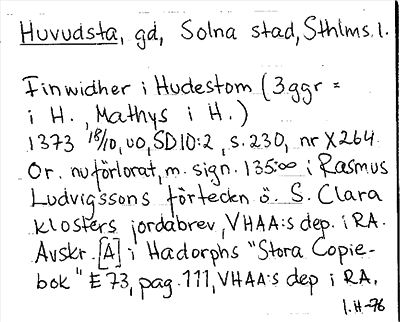 Huvudsta, gd, Solna stad, Sthlms. l.
Finwidher i Hudestom (3 ggr =
i H., Mathys i H.)
1373 18/10, uo, SD 10:2, s. 230, nr X264.
Or. nu förlorat, m. sign. 135:∞ i Rasmus
Ludvigssons förteckn ö. S. Clara
klosters jordabrev, VHAA:s dep. i RA.
Avskr. [A] i Hadorphs "Stora Copie-
bok" E 73, pag. 111, VHAA:s dep i RA.
I.H-76